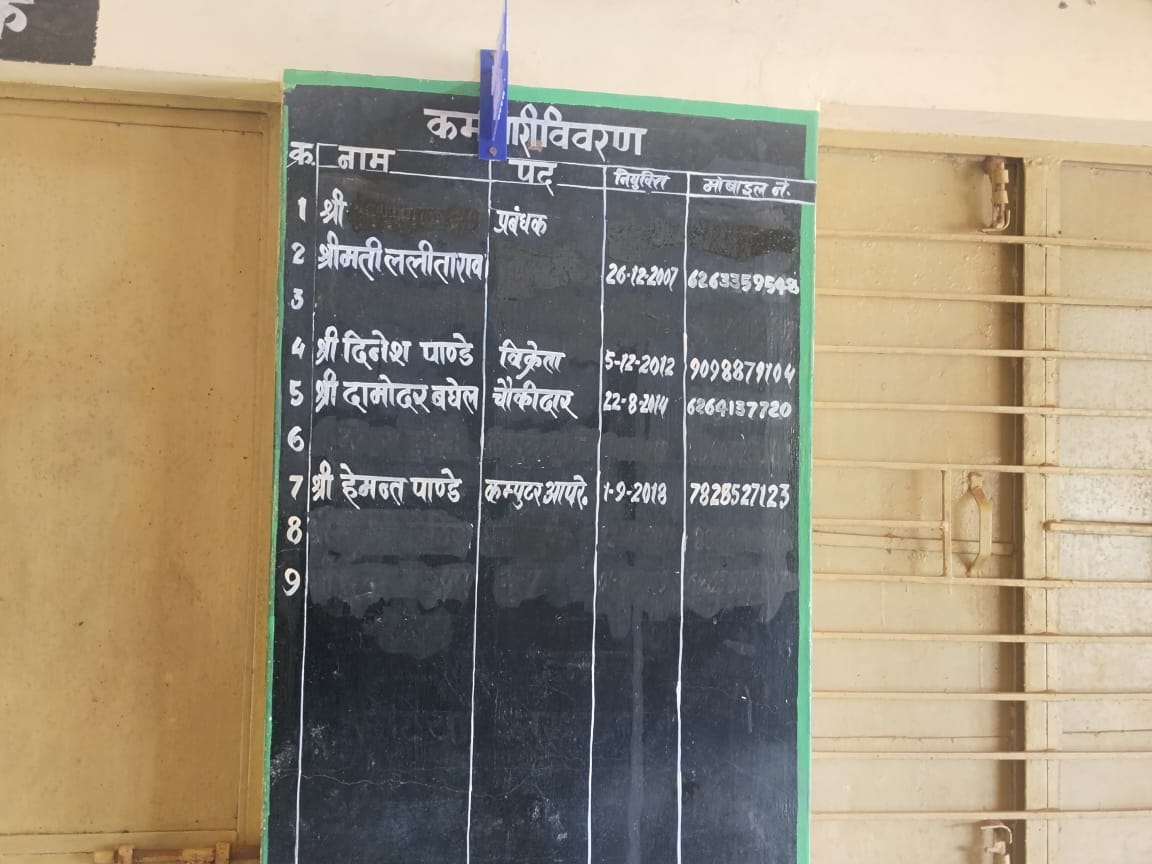 क
कर्मचारी विवरण
क्र. नाम पद नियुक्ति मोबाइल नं.
1 श्री प्रबंधक
2 श्रीमती ललीता राव 26-12-2007 6263359548
3
4 श्री दिनेश पाण्डे विक्रेता 5-12-2012 9098879104
5 श्री दामोदर बघेल चौकीदार 22-8-2014 6264137720
6
7 श्री हेमन्त पाण्डे कम्पुटर आपरे. 1-9-2018 7828527123
8
9